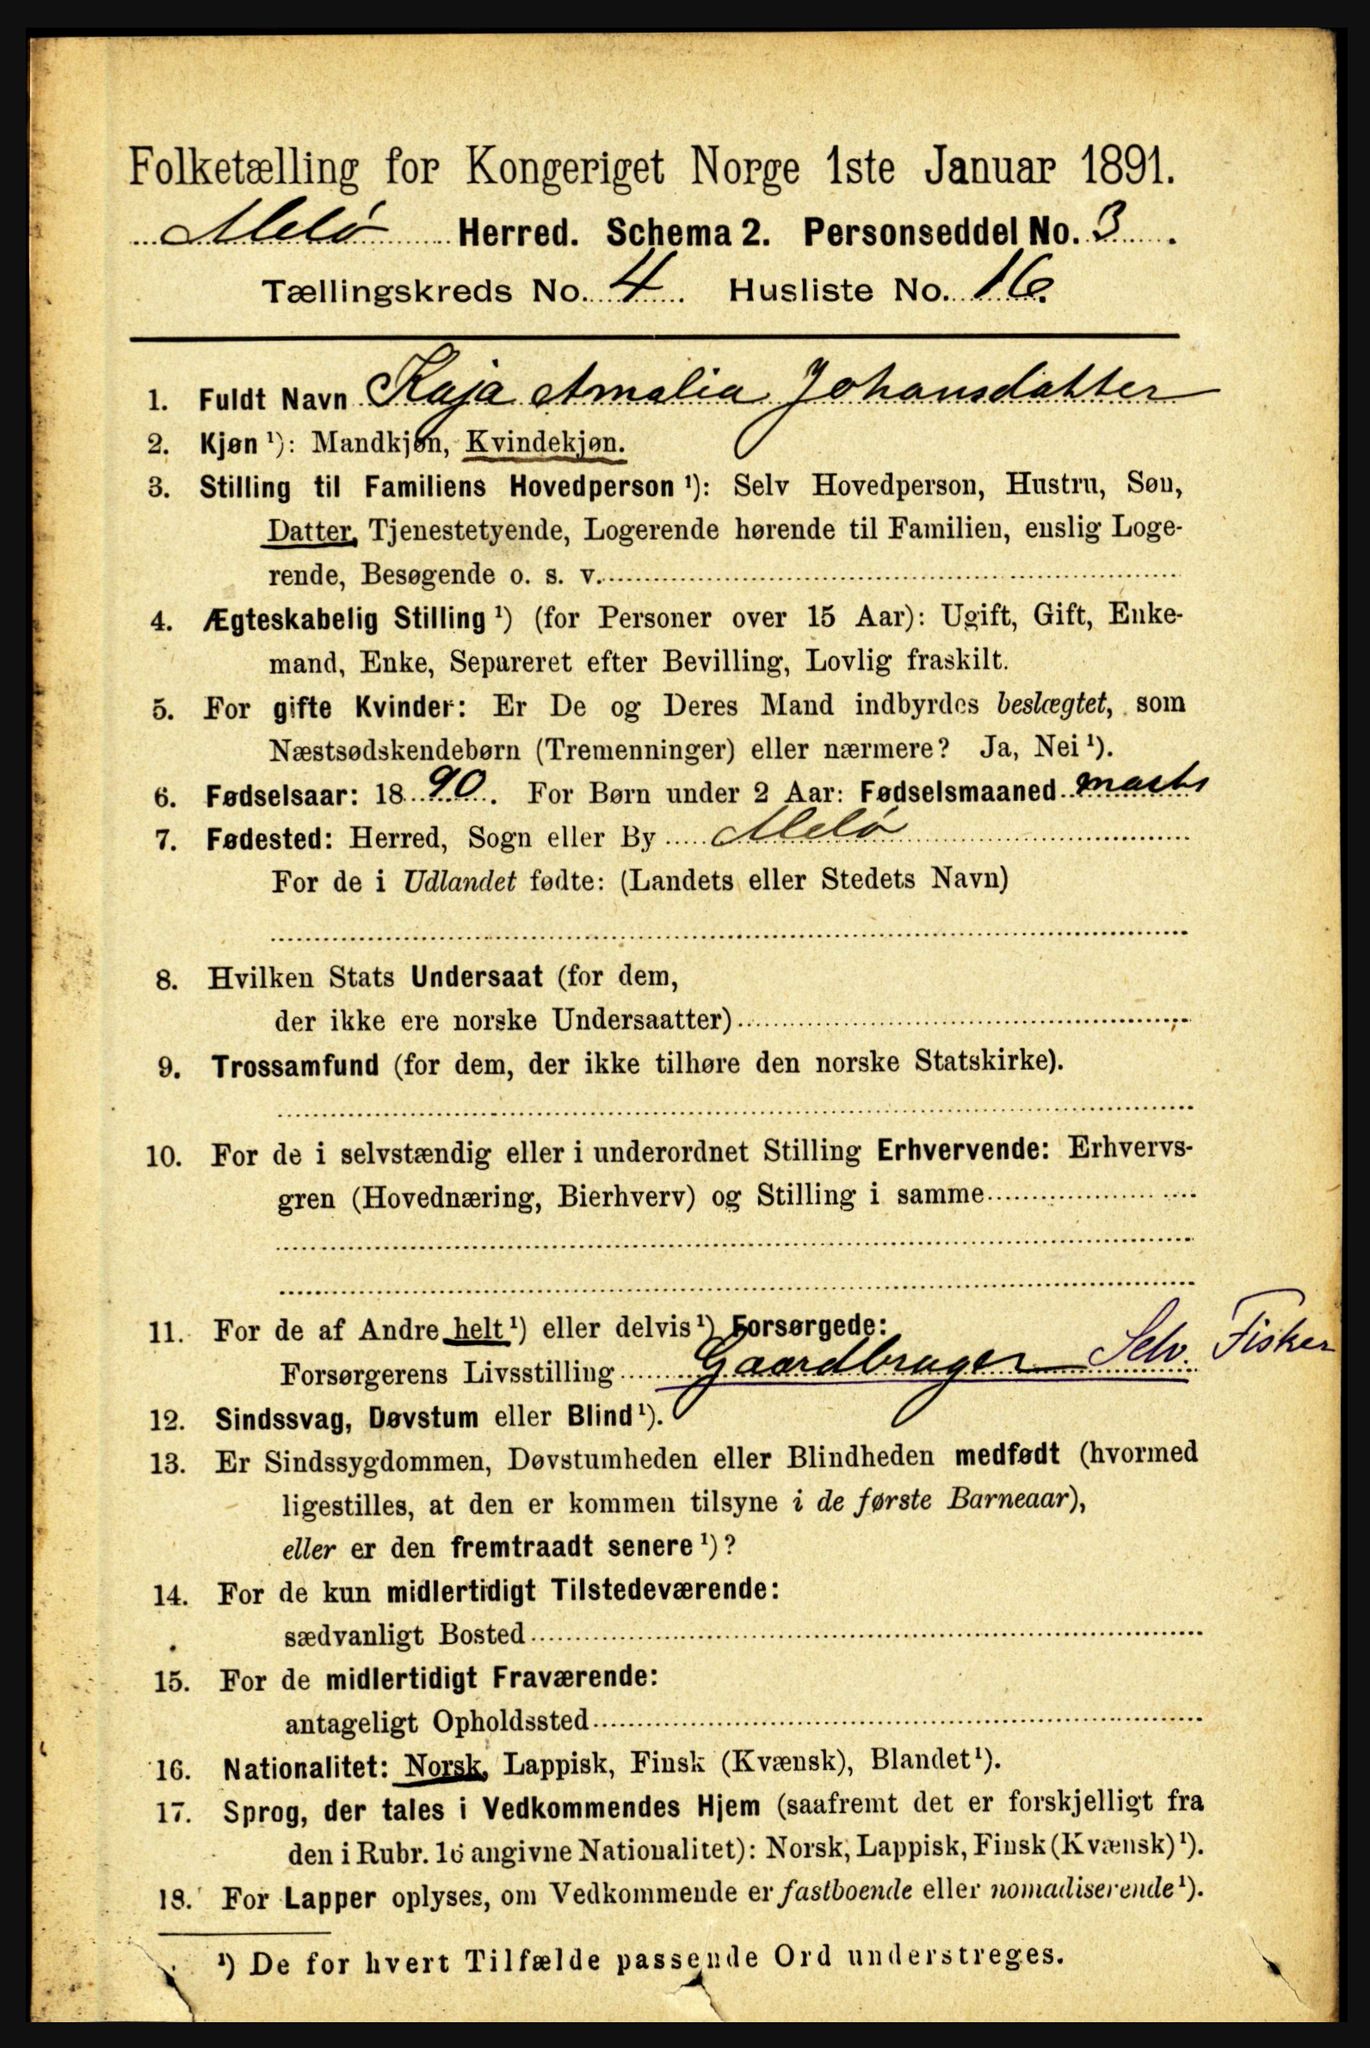 Folketælling for Kongeriget Norge 1ste Januar 1891.
Melø Herred. Schema 2. Personseddel No. 3.
Tællingskreds No. 4. Husliste No. 16.
1. Fuldt Navn Kaja Amalia Johansdatter
2. Kjøn ¹): Mandkjøn, Kvindekjøn.
3. Stilling til Familiens Hovedperson ¹): Selv Hovedperson, Hustru, Søn,
Datter, Tjenestetyende, Logerende hørende til Familien, enslig Loge-
rende, Besøgende o. s. v.
4. Ægteskabelig Stilling ¹) (for Personer over 15 Aar): Ugift, Gift, Enke-
mand, Enke, Separeret efter Bevilling, Lovlig fraskilt.
5. For gifte Kvinder: Er De og Deres Mand indbyrdes beslægtet, som
Næstsødskendebørn (Tremenninger) eller nærmere? Ja, Nei ¹).
6. Fødselsaar: 1890. For Børn under 2 Aar: Fødselsmaaned marts
7. Fødested: Herred, Sogn eller By Melø
For de i Udlandet fødte: (Landets eller Stedets Navn)
8. Hvilken Stats Undersaat (for dem,
der ikke ere norske Undersaatter)
9. Trossamfund (for dem, der ikke tilhøre den norske Statskirke).
10. For de i selvstændig eller i underordnet Stilling Erhvervende: Erhvervs-
gren (Hovednæring, Bierhverv) og Stilling i samme
11. For de af Andre helt ¹) eller delvis ¹) Forsørgede:
Forsørgerens Livsstilling Gaardbruger Selv. Fisker
12. Sindssvag, Døvstum eller Blind ¹).
13. Er Sindssygdommen, Døvstumheden eller Blindheden medfødt (hvormed
ligestilles, at den er kommen tilsyne i de første Barneaar),
eller er den fremtraadt senere ¹)?
14. For de kun midlertidigt Tilstedeværende:
sædvanligt Bosted
15. For de midlertidigt Fraværende:
antageligt Opholdssted
16. Nationalitet: Norsk, Lappisk, Finsk (Kvænsk), Blandet ¹).
17. Sprog, der tales i Vedkommendes Hjem (saafremt det er forskjelligt fra
den i Rubr. 16 angivne Nationalitet): Norsk, Lappisk, Finsk (Kvænsk) ¹).
18. For Lapper oplyses, om Vedkommende er fastboende eller nomadiserende ¹).
¹) De for hvert Tilfælde passende Ord understreges.